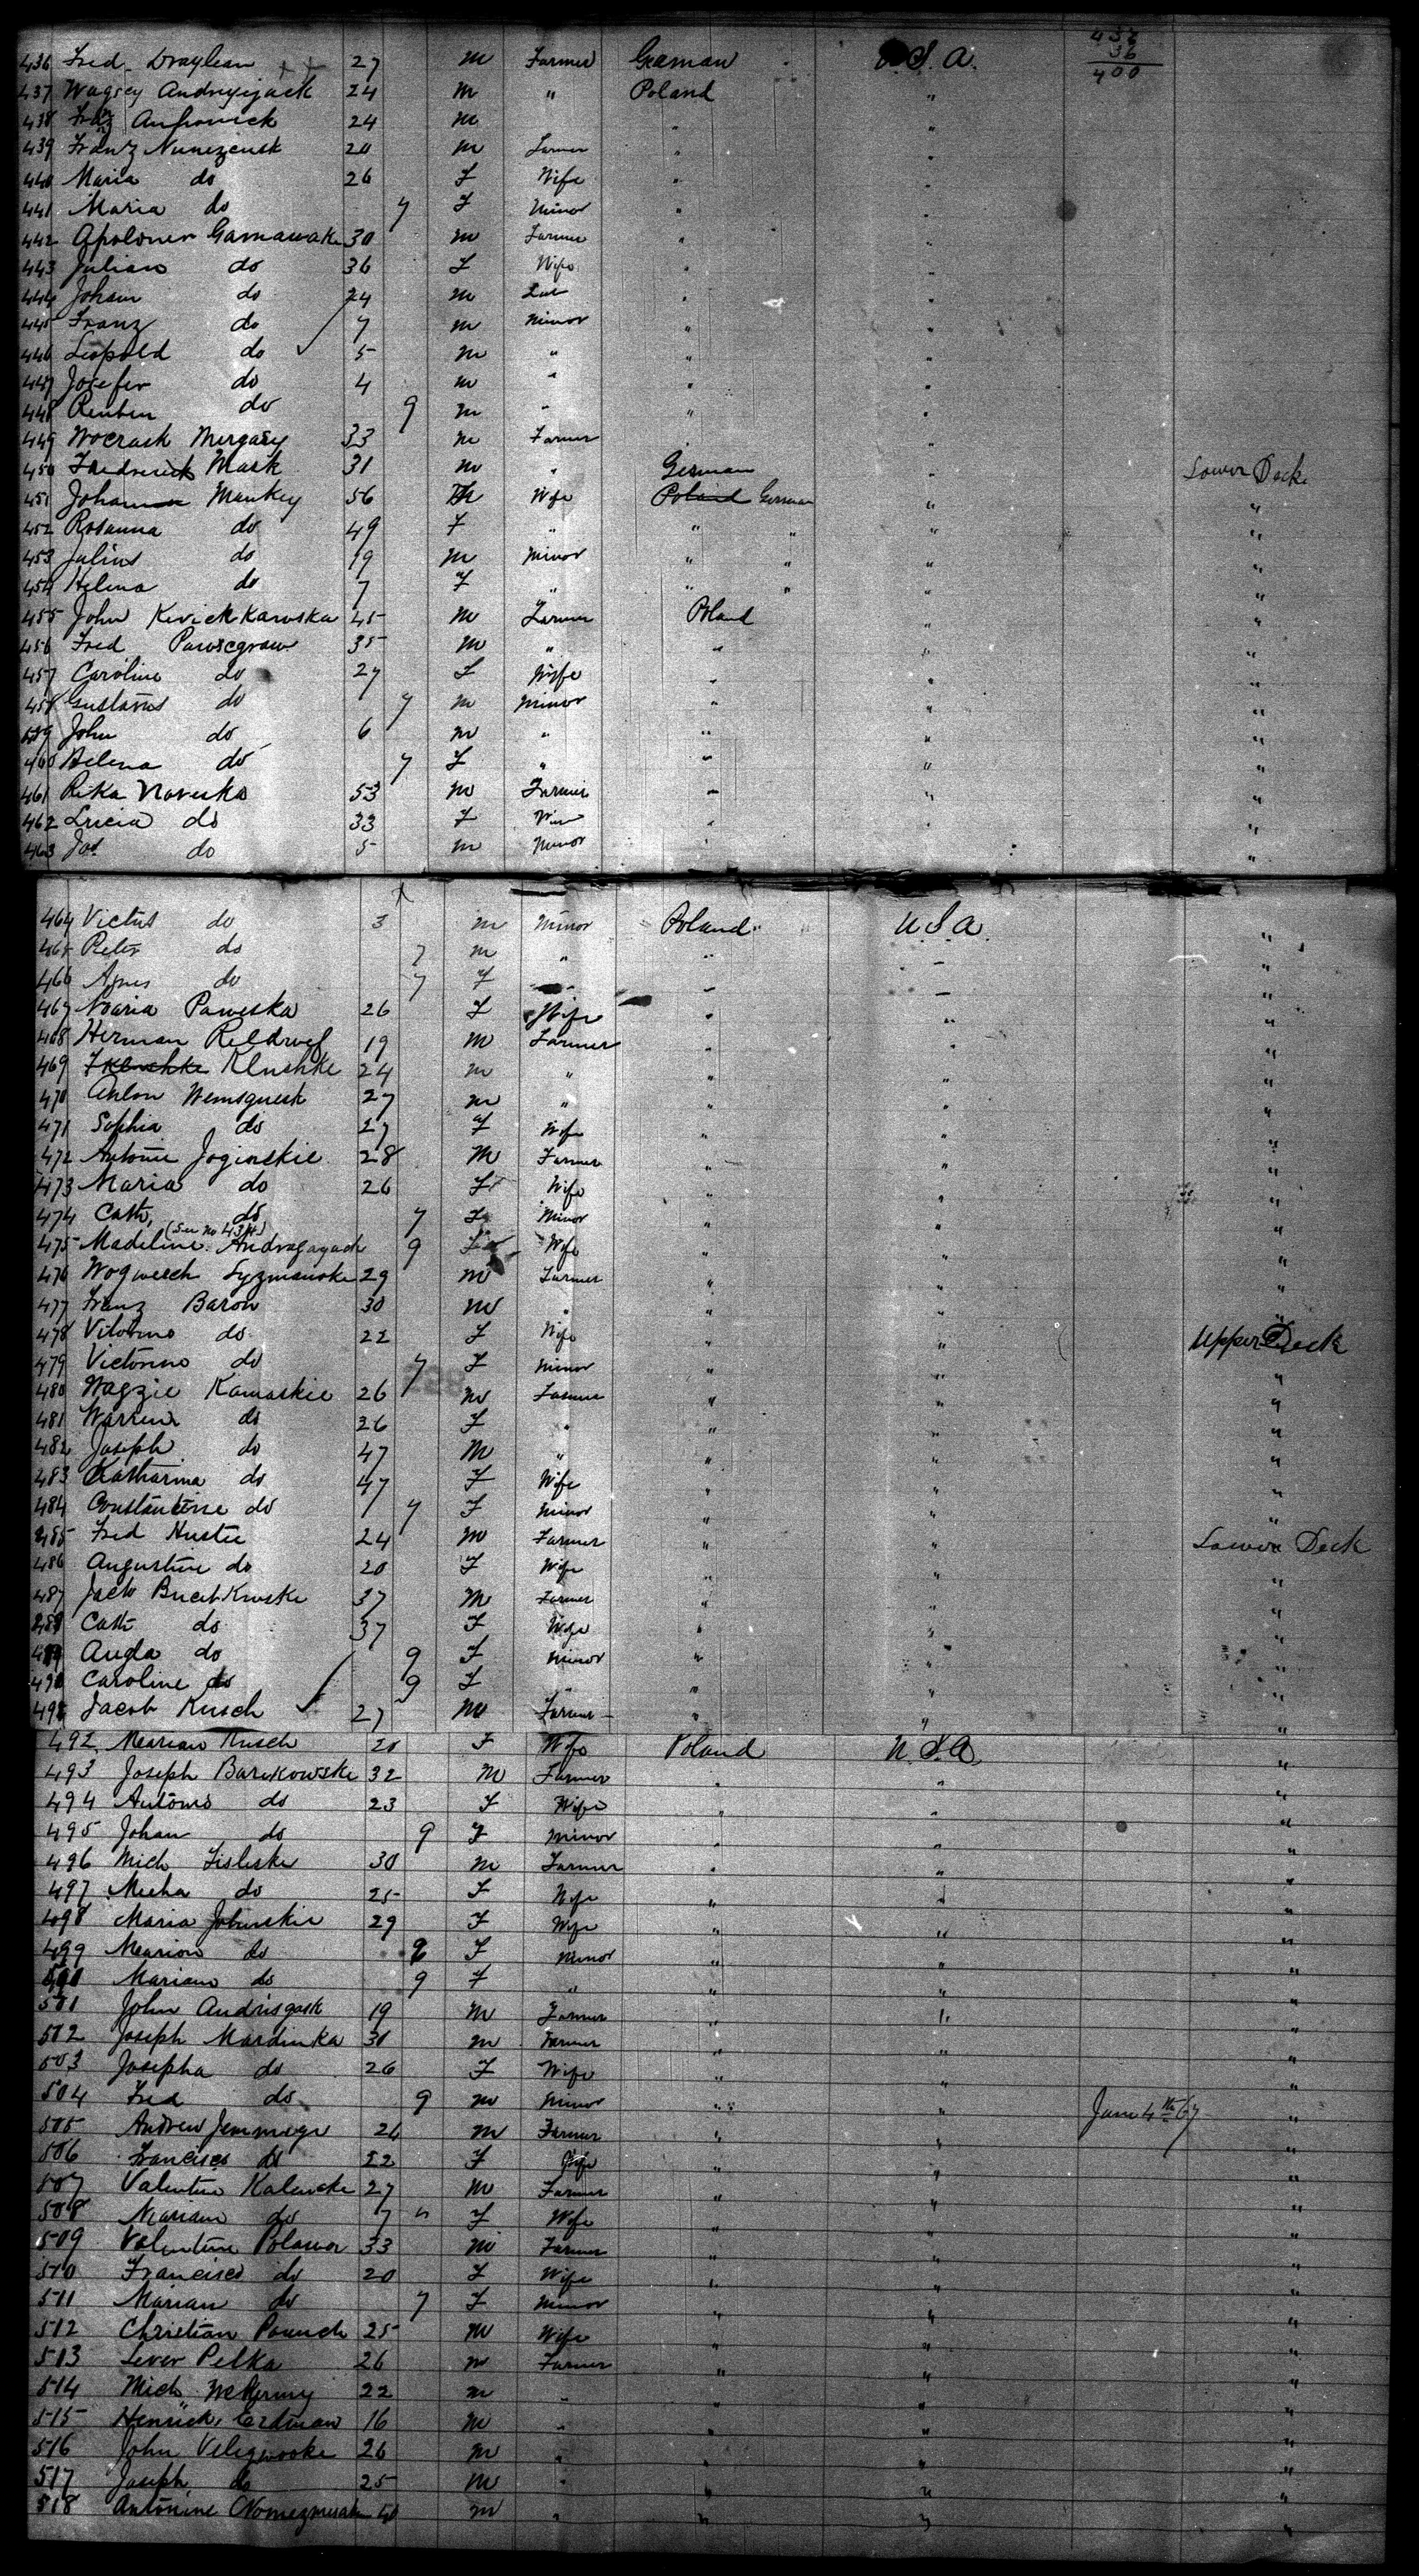 437
36
400
436 Fred Draylean 27 m Farmer German U.S.A.
437 Wagsey Andryijack 24 m " Poland "
438 Franz 24 m " "
439 Franz 20 m Farmer " "
440 Maria do 26 F Wife " "
441 Maria do 7 F Minor " "
442 Apoloner Garnawake 30 m Farmer " "
443 Julian do 36 F Wife " "
444 Johan do 24 m " "
445 Franz do 7 m Minor " "
446 Leopold do 5 m " " "
447 Josefer do 4 m " " "
448 Reuben do 9 m " " "
449 Wocrask Mergasy 33 m Farmer " "
450 Fredrerick Mark 31 m " German " Lower Deck
451 Johan Mankey 56 M Wife Poland German " "
452 Rosanna do 49 F " " " " "
453 Julius do 19 m Minor " " " "
454 Helena do 7 F " " " " "
455 John Kevickkawska 45 m Farmer Poland " "
456 Fred 35 m " " " "
457 Caroline do 27 F Wife " " "
458 Gustavus do 7 m Minor " " "
459 John do 6 m " " " "
460 Helena do 7 F " " " "
461 Rika Naveska 53 m Farmer " " "
462 Lucia do 33 F " " "
463 Jos do 5 m Minor " " "
464 Victus do 3 m Minor Poland U.S.A. "
465 Peter do 7 m " " " "
466 Agnes do 7 F " " " "
467 Maria Paweska 26 F Wife " " "
468 Herman 19 m Farmer " " "
469 Klushke 24 m " " " "
470 Anlon Wemsguesk 27 m " " " "
471 Sophia do 27 F Wife " " "
472 Antonie Joginskie 28 M Farmer " " "
473 Maria do 26 F Wife " " "
474 Cath, do 7 F Minor " " "
(See no 437)
475 Madeline Andragayack 9 F Wife " " "
476 Wogwerch Syzmanske 29 m Farmer " " "
477 Franz Baron 30 m " " " "
478 do 22 F Wife " " Upper Deck
479 Victorine do 7 F Minor " " "
480 Wagzie Kamaskie 26 m Farmer " " "
481 do 26 F " " " "
482 Joseph do 47 M " " " "
483 Katharina do 47 F Wife " " "
484 Constantine do 7 F Minor " " "
485 Fred Hustee 24 m Farmer " " Lower Deck
486 Augustine do 20 F Wife " " "
487 37 M Farmer " " "
488 Cath do 37 F Wife " " "
489 Angla do 9 F Minor " " "
490 Caroline do 9 F " " " "
491 Jacob Kusch 27 m Farmer " " "
492 Marian Kusch 20 F Wife Poland U.S.A. "
493 Joseph Barikowske 32 M Farmer " " "
494 Antonio do 23 F Wife " " "
495 Johan do 9 F Minor " " "
496 Mich Fisleske 30 m Farmer " " "
497 Mecha do 25 F Wife " " "
498 Maria Joburskie 29 F Wife " " "
499 Marion do 9 F Minor " " "
500 Mariano do 9 F " " " "
501 John Andrisgask 19 m Farmer " " "
502 Joseph Mardinka 30 m Farmer " " "
503 Josepha do 26 F Wife " " "
504 Fred do 9 m Minor " " June 4th 67 "
505 Andrew 24 m Farmer " " "
506 Francisco do 22 F Wife " " "
507 Valentine Kalenske 27 m Farmer " " "
508 Marian do 7 " F Wife " " "
509 Valentine Polawor 33 m Farmer " " "
510 Francisco do 20 F Wife " " "
511 Marian do 7 F Minor " " "
512 Christian 25 m Wife " " "
513 Lever Pelka 26 m Farmer " " "
514 Mich 22 m " " " "
515 Henrick Erdman 16 m " " " "
516 John Velegwooke 26 m " " " "
517 Joseph do 25 m " " " "
518 Antonine 40 m " " " "